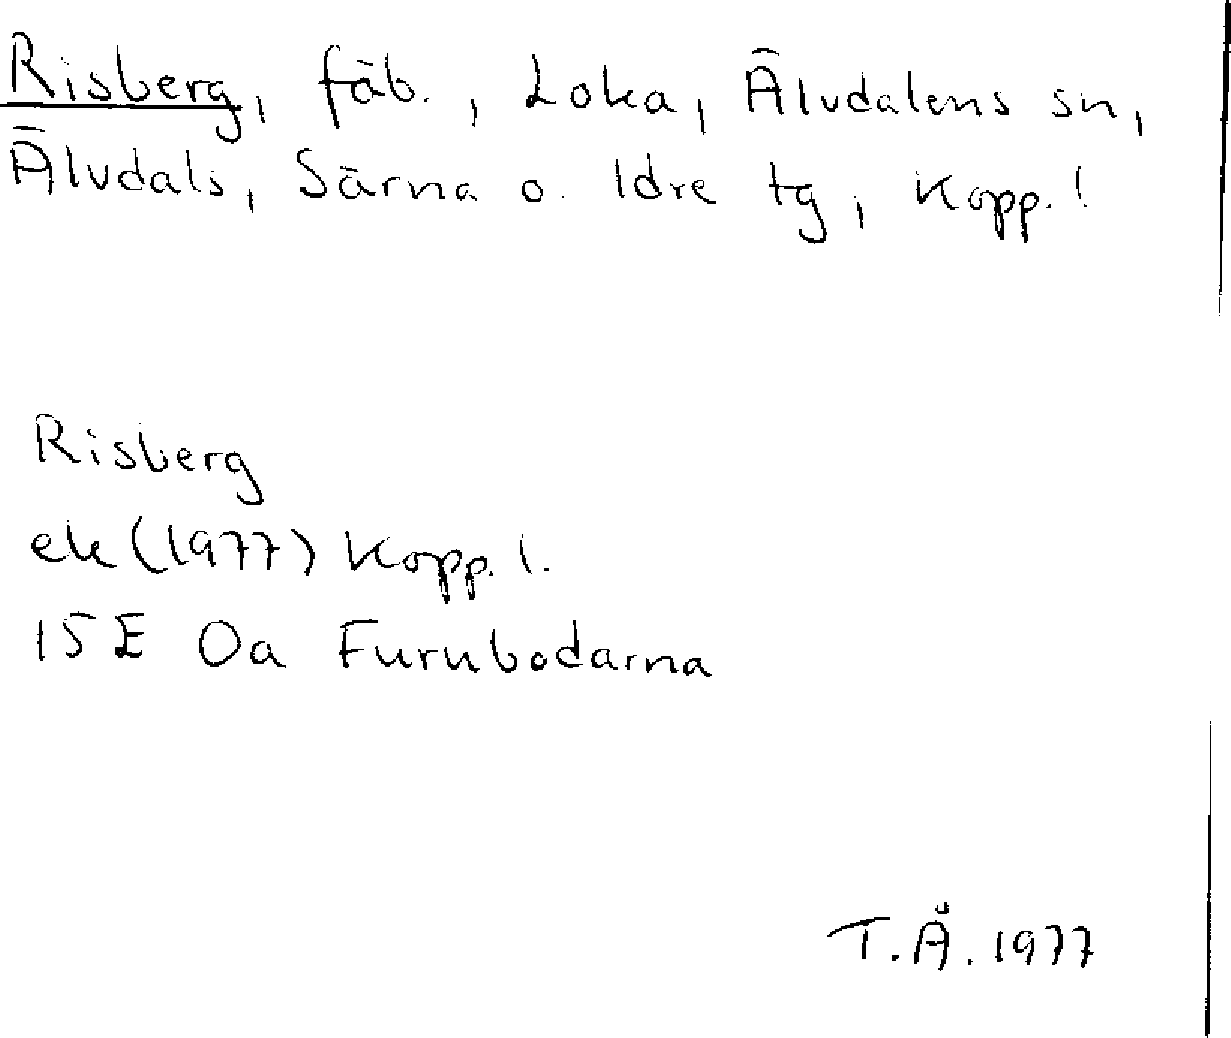 Risberg, fäb., Loka, Älvdalens sn,
Älvdals, Särna o. Idre tg, Kopp. l
Risberg
ek (1977) Kopp. l.
15E 0a Furubodarna
T.Å. 1977